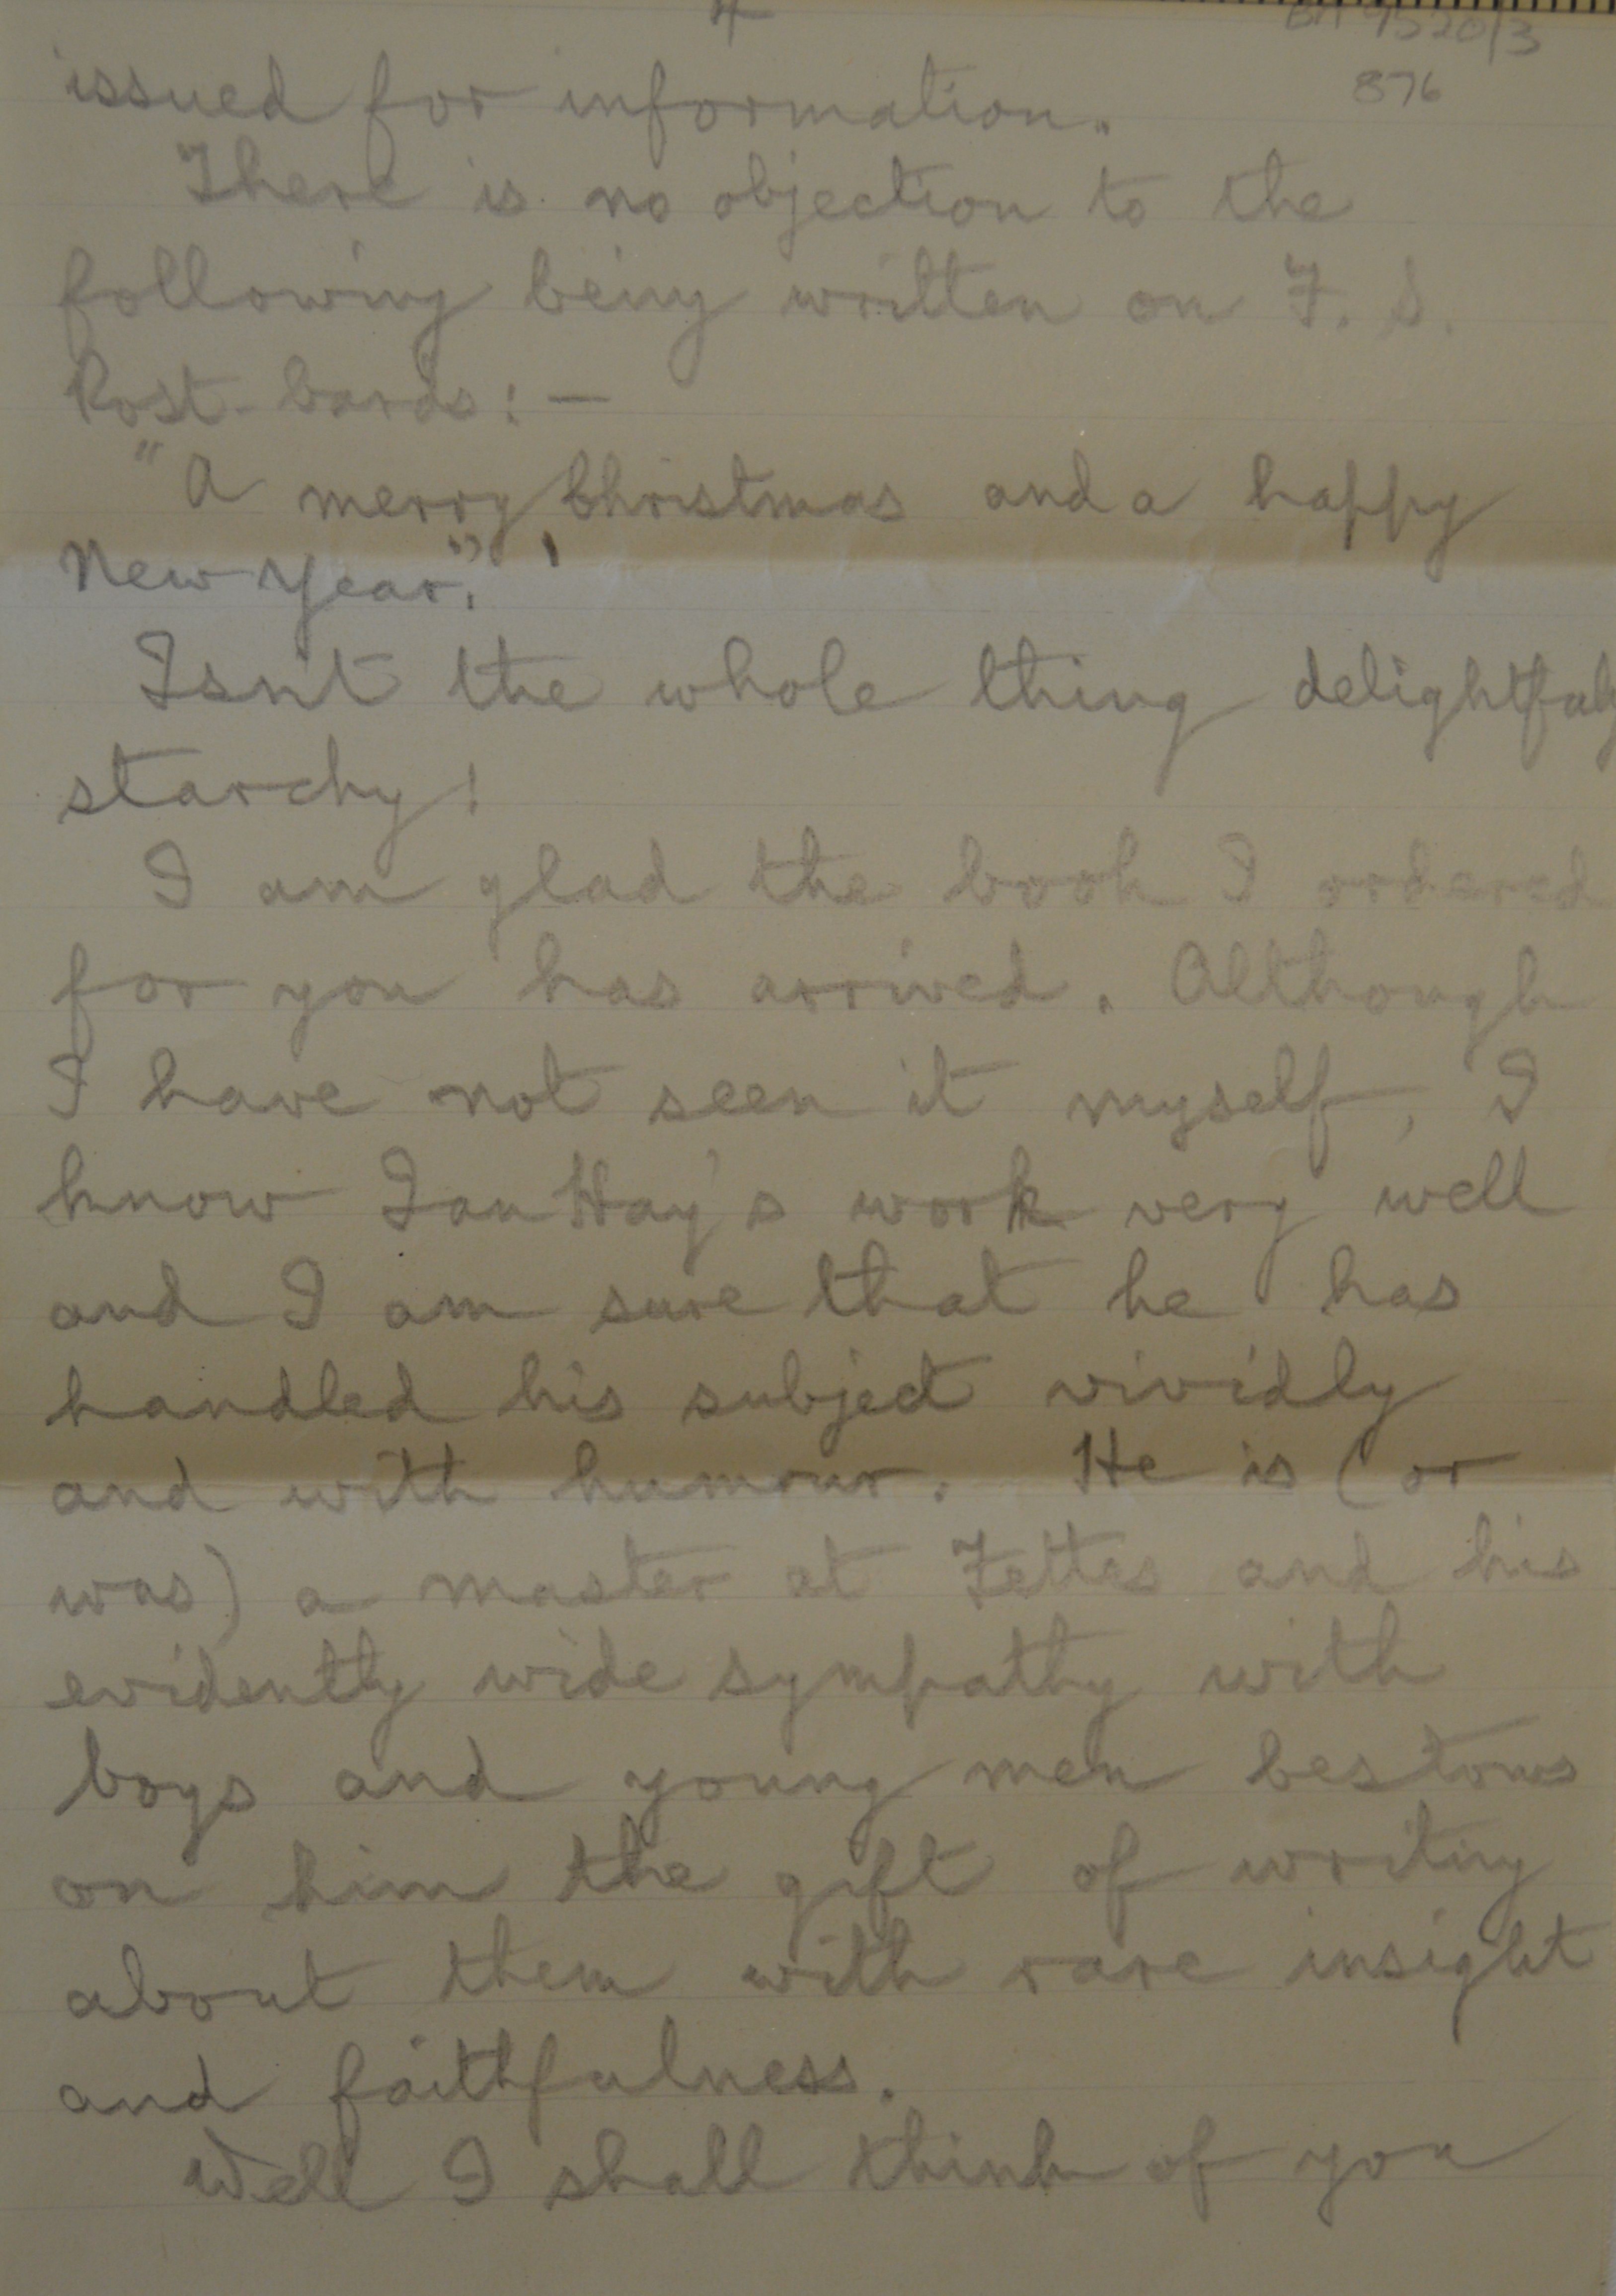 4
876
issued for information.
There is no objection to the
following being written on F. S.
Post-Cards: —
"A merry Christmas and a happy
New Year."'
Isn't the whole thing delightfuly
starchy!
I am glad the book I ordered
for you has arrived. Although
I have not seen it myself, I
know Ian Hay's work very well
and I am sure that he has
handled his subject vividly
and with humour. He is (or
was) a master at Fettes and his
evidently wide sympathy with
boys and young men bestows
on him the gift of writing
about them with rare insight
and faithfulness.
Well I shall think of you